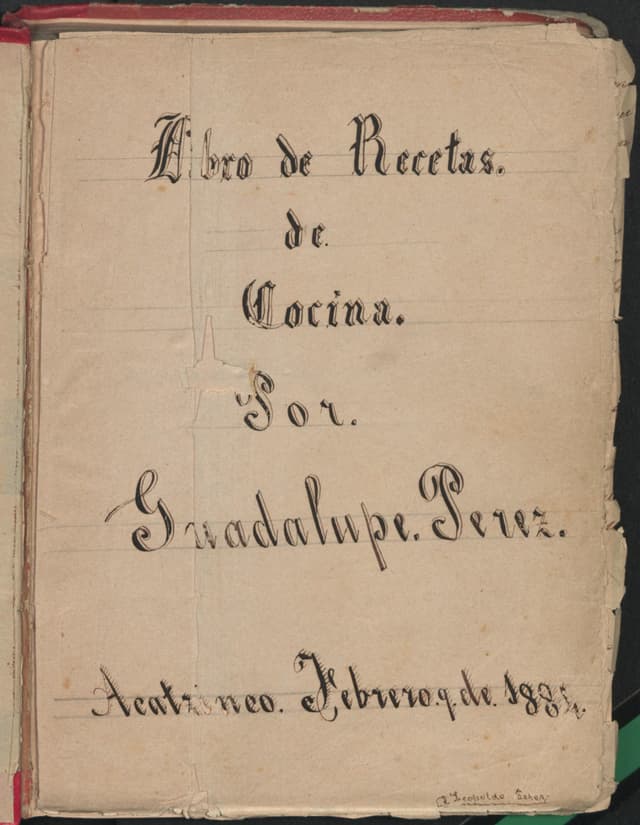 Libro de Recetas.
de.
Cocina.
Por.
Guadalupe. Perez.
Acatzinco. Febrero. 9. de.
Leopoldo